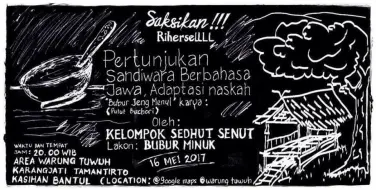 Saksikan !!!
Rihersellll
Pertunjukan
Sandiwara Berbahasa
Jawa, Adaptasi naskah
"Bubur Jeng Menul" karya:
(Puput Buchori)
Oleh:
KELOMPOK SEDHUT SENUT
Lakon: BUBUR MINUK
16 MEI 2017
WAKTU DAN TEMPAT
JAM: 20.00 WIB
AREA WARUNG TUWUH
KARANGJATI TAMANTIRTO
KASIHAN BANTUL (LOCATION: @google maps @warung tuwuh